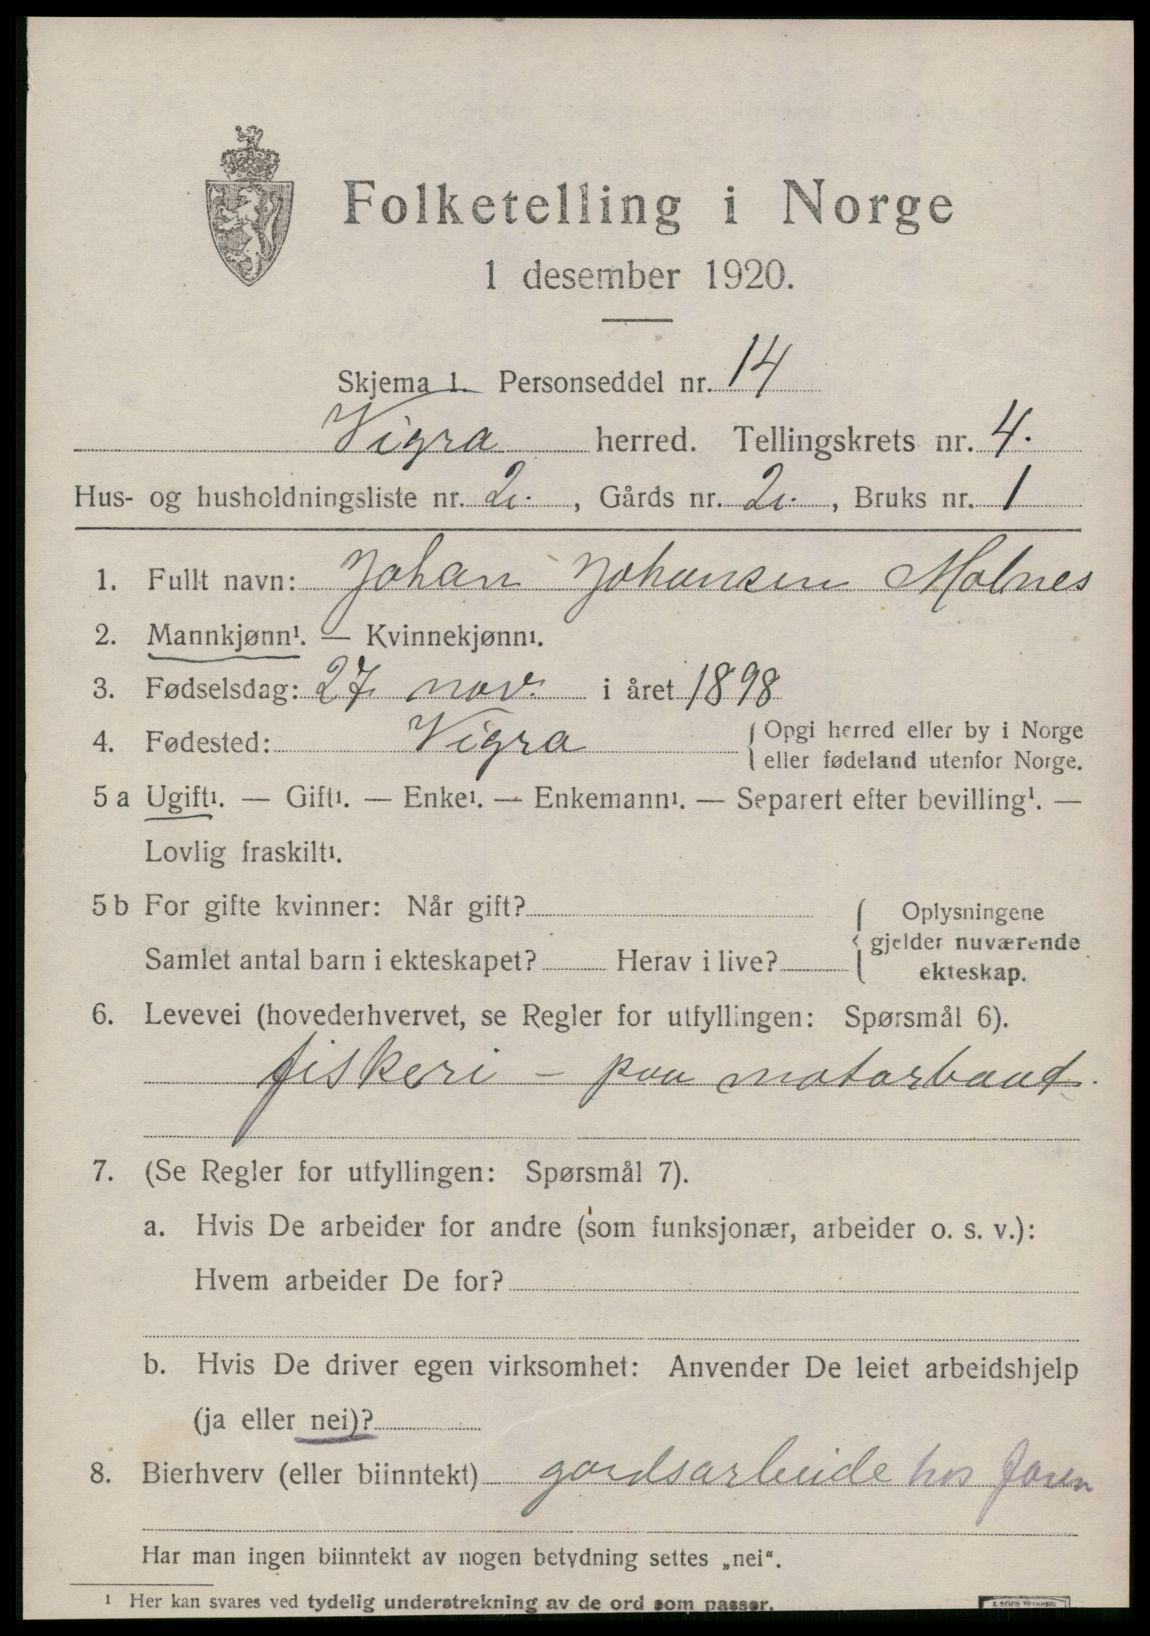 Folketelling i Norge
1 desember 1920.
Skjema 1. Personseddel nr. 14
Vigra herred. Tellingskrets nr. 4.
Hus- og husholdningsliste nr. 2. , Gårds nr. 2. , Bruks nr. 1
1. Fullt navn: Johan Johansen Molnes
2. Mannkjønn¹. — Kvinnekjønn¹.
3. Fødselsdag: 27 nov. i året 1898
4. Fødested: Vigra { Opgi herred eller by i Norge
eller fødeland utenfor Norge.
5 a Ugift¹. — Gift¹. — Enke¹. — Enkemann¹. — Separert efter bevilling¹. —
Lovlig fraskilt¹.
5 b For gifte kvinner: Når gift? { Oplysningene
gjelder nuværende
Samlet antal barn i ekteskapet? Herav i live? ekteskap.
6. Levevei (hovederhvervet, se Regler for utfyllingen: Spørsmål 6).
fiskeri - paa motorbaat.
7. (Se Regler for utfyllingen: Spørsmål 7).
a. Hvis De arbeider for andre (som funksjonær, arbeider o. s. v.):
Hvem arbeider De for?
b. Hvis De driver egen virksomhet: Anvender De leiet arbeidshjelp
(ja eller nei)?
8. Bierhverv (eller biinntekt) gardsarbeide hos faren
Har man ingen biinntekt av nogen betydning settes „nei“.
¹ Her kan svares ved tydelig understrekning av de ord som passer.